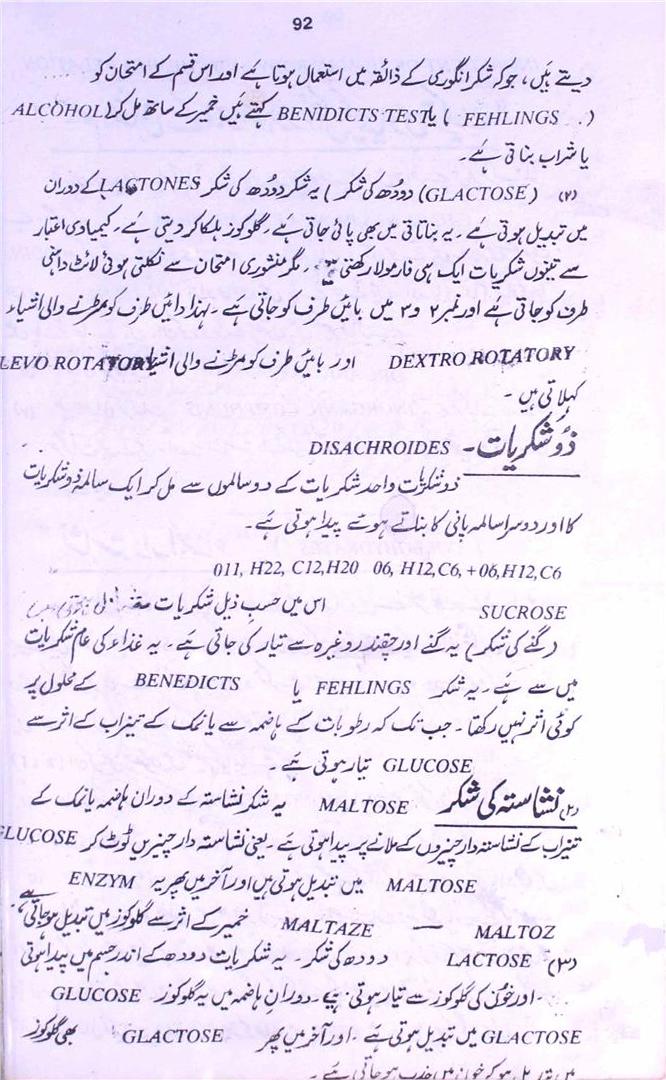 92
دیتے ہیں ، جو کہ شکر انگوری کے ذائقہ میں استعمال ہوتا ہے اور اس قسم کے امتحان کو
( FEHLINGS ) یا BENIDICTS TEST کہتے ہیں خمیر کے ساتھ مل کر (ALCOHOL
یا شراب بناتی ہے ۔
(۲) (GLACTOSE) دودھ کی شکر ) یہ شکر دودھ کی شکر LACTONES کے دوران
میں تبدیل ہوتی ہے ۔ یہ بناتاتی میں بھی پائی جاتی ہے ۔ گلوکوز ہلکا کر دیتی ہے ۔ کیمیاوی اعتبار
سے تینوں شکریات ایک ہی فارمولا رکھتی ۔ مگر منشوری امتحان سے نکلتی ہوئی لائٹ داہنی
طرف کو جاتی ہے اور نمبر ۲ و ۳ میں بائیں طرف کو جاتی ہے ۔ لہذا دائیں طرف کو مڑنے والی اشیاء
DEXTRO ROTATORY اور بائیں طرف کو مڑنے والی اشیاء LEVO ROTATORY
کہلاتی ہیں ۔
ذُو شکریات ۔ DISACHROIDES
ذو شکریات واحد شکریات کے دو سالموں سے مل کر ایک سالمہ ذو شکریات
کا اور دوسرا سالمہ پانی کا بناتے ہوئے پیدا ہوتی ہے ۔
011, H22, C12,H20 06, H12,C6,+06,H12,C6
اس میں حسب ذیل شکریات SUCROSE
(گنے کی شکر) یہ گنے اور چقندر وغیرہ سے تیار کی جاتی ہے ۔ یہ غذاء کی عام شکریات
میں سے ہے ۔ یہ شکر FEHLINGS یا BENEDICTS کے محلول پر
کوئی اثر نہیں رکھتا ۔ جب تک کہ رطوبات کے ہاضمہ سے یا نمک کے تیزاب کے اثر سے
GLUCOSE تیار ہوتی ہے ۔
(۲) نشاستہ کی شکر MALTOSE یہ شکر نشاستہ کے دوران ہاضمہ یا نمک کے
تیزاب کے نشاستہ دار چیزوں کے ملانے پر پیدا ہوتی ہے ۔ یعنی نشاستہ دار چیزیں ٹوٹ کر GLUCOSE
MALTOSE میں تبدیل ہوتی ہیں اور آخر میں پھر یہ ENZYM
MALTOZ — MALTAZE خمیر کے اثر سے گلوکوز میں تبدیل ہو جاتی ہے
(۳) LACTOSE دودھ کی شکر ۔ یہ شکریات دودھ کے اندر جسم میں پیدا ہوتی
اور خون کی گلوکوز سے تیار ہوتی ہے ۔ دوران ہاضمہ میں یہ گلوکوز GLUCOSE
GLACTOSE میں تبدیل ہوتی ہے ۔ اور آخر میں پھر GLACTOSE بھی گلوکوز
میں تبدیل ہو کر خون میں جذب ہو جاتی ہے ۔